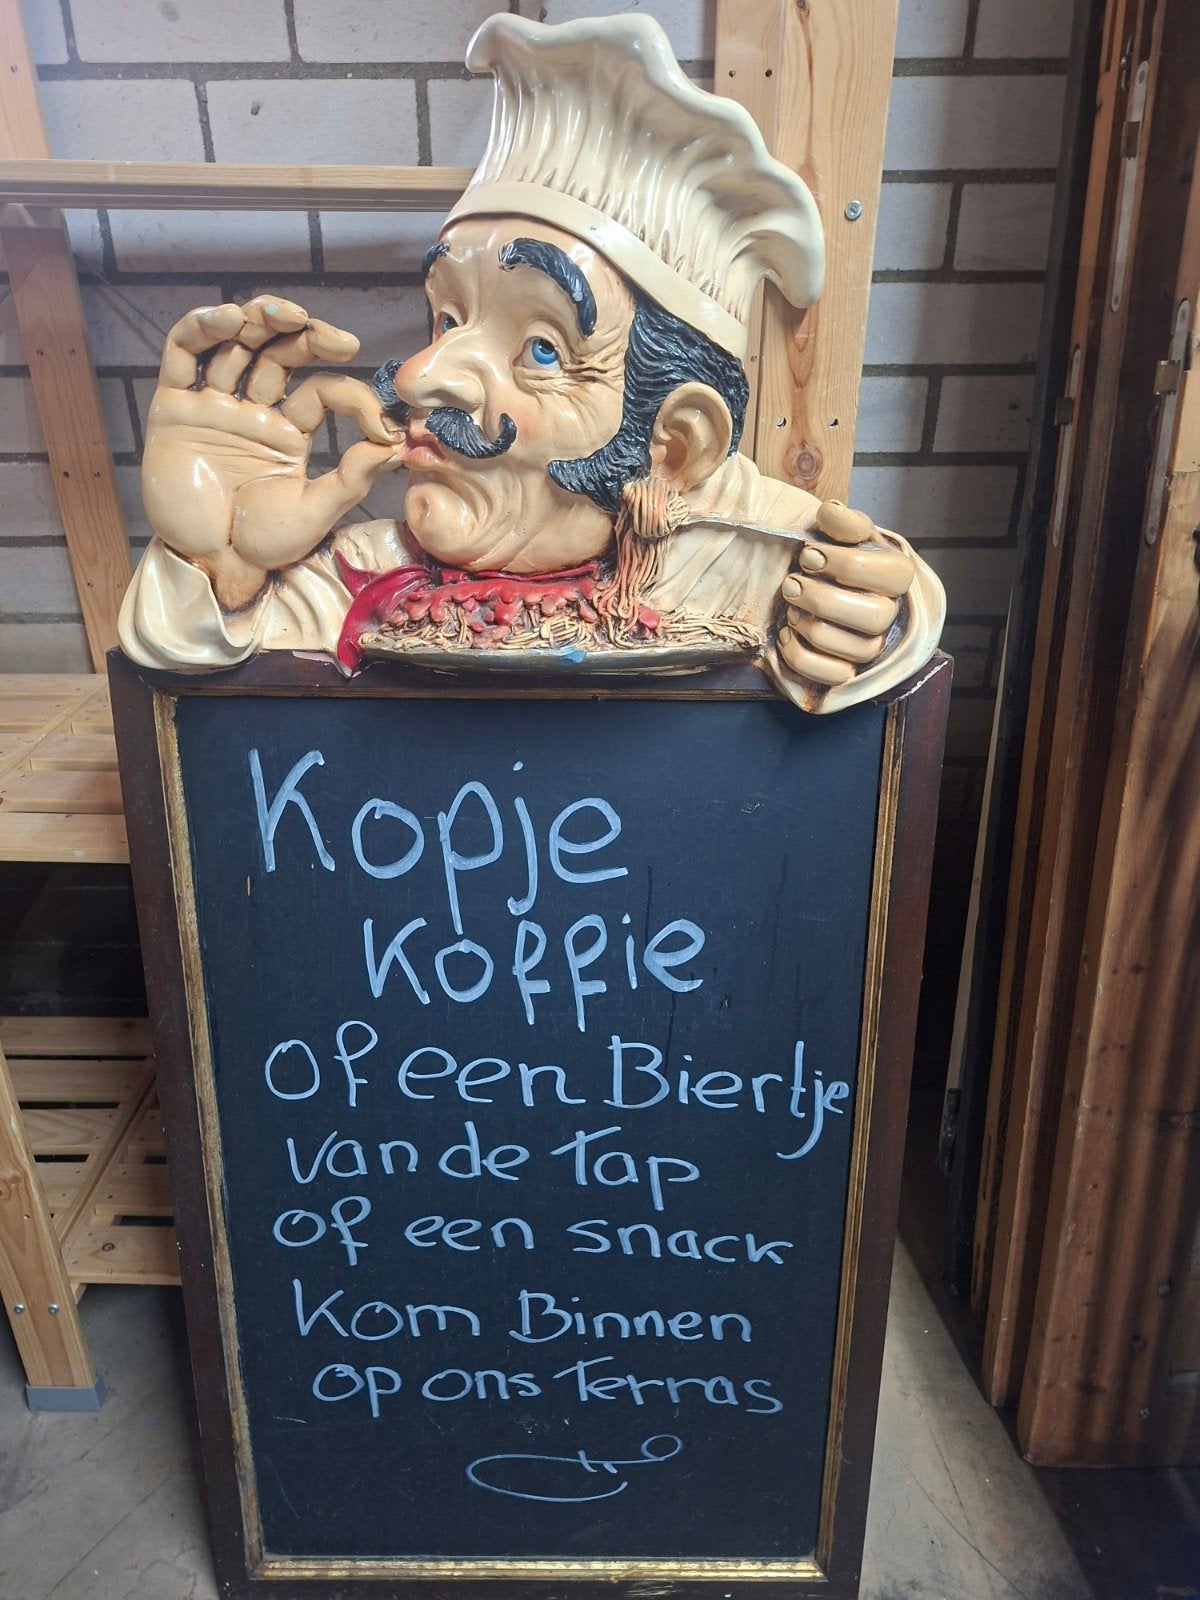 Kopje
Koffie
of een Biertje
van de Tap
of een snack
Kom Binnen
op ons Terras